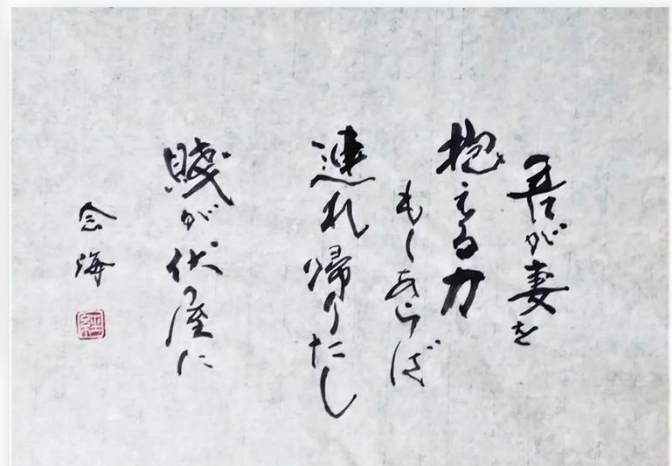 吾が妻を
抱える力
もしあらば
連れ帰りたし
賤が伏屋に
念海